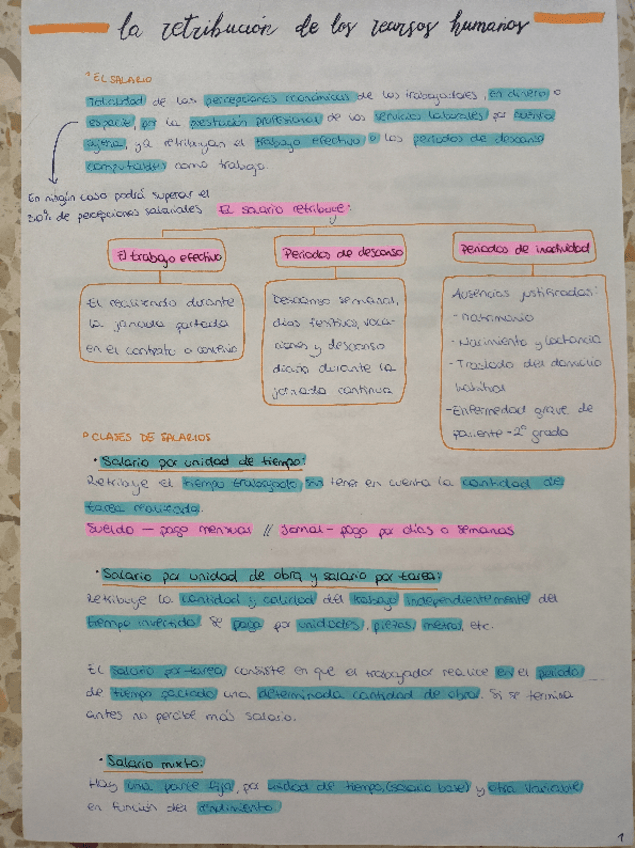 la retribución de los recursos humanos
EL SALARIO
Totalidad de las percepciones económicas de los trabajadores, en dinero o
especie, por la prestación profesional de los servicios laborales por cuenta
ajena, ya retribuyan el trabajo efectivo o los periodos de descanso
computables como trabajo.
En ningún caso podrá superar el
30% de percepciones salariales
El salario retribuye:
El trabajo efectivo
Periodos de descanso
Periodos de inactividad
El realizado durante
la jornada pactada
en el contrato o convenio
Descanso semanal,
días festivos, vaca-
ciones y descanso
diario durante la
jornada continua
Ausencias justificadas:
- Matrimonio
- Nacimiento y lactancia
- Traslado del domicilio
habitual
- Enfermedad grave de
pariente - 2º grado
CLASES DE SALARIOS
· Salario por unidad de tiempo:
Retribuye el tiempo trabajado, sin tener en cuenta la cantidad de
tarea realizada.
Sueldo — pago mensual // Jornal - pago por días o semanas
· Salario por unidad de obra y salario por tarea:
Retribuye la cantidad y calidad del trabajo independientemente del
tiempo invertido. Se paga por unidades, piezas, metros, etc.
El salario por tarea consiste en que el trabajador realice en el periodo
de tiempo pactado una determinada cantidad de obra. Si se termina
antes no percibe más salario.
· Salario mixto:
Hay una parte fija, por unidad de tiempo, (salario base) y otra variable
en función del rendimiento.
1